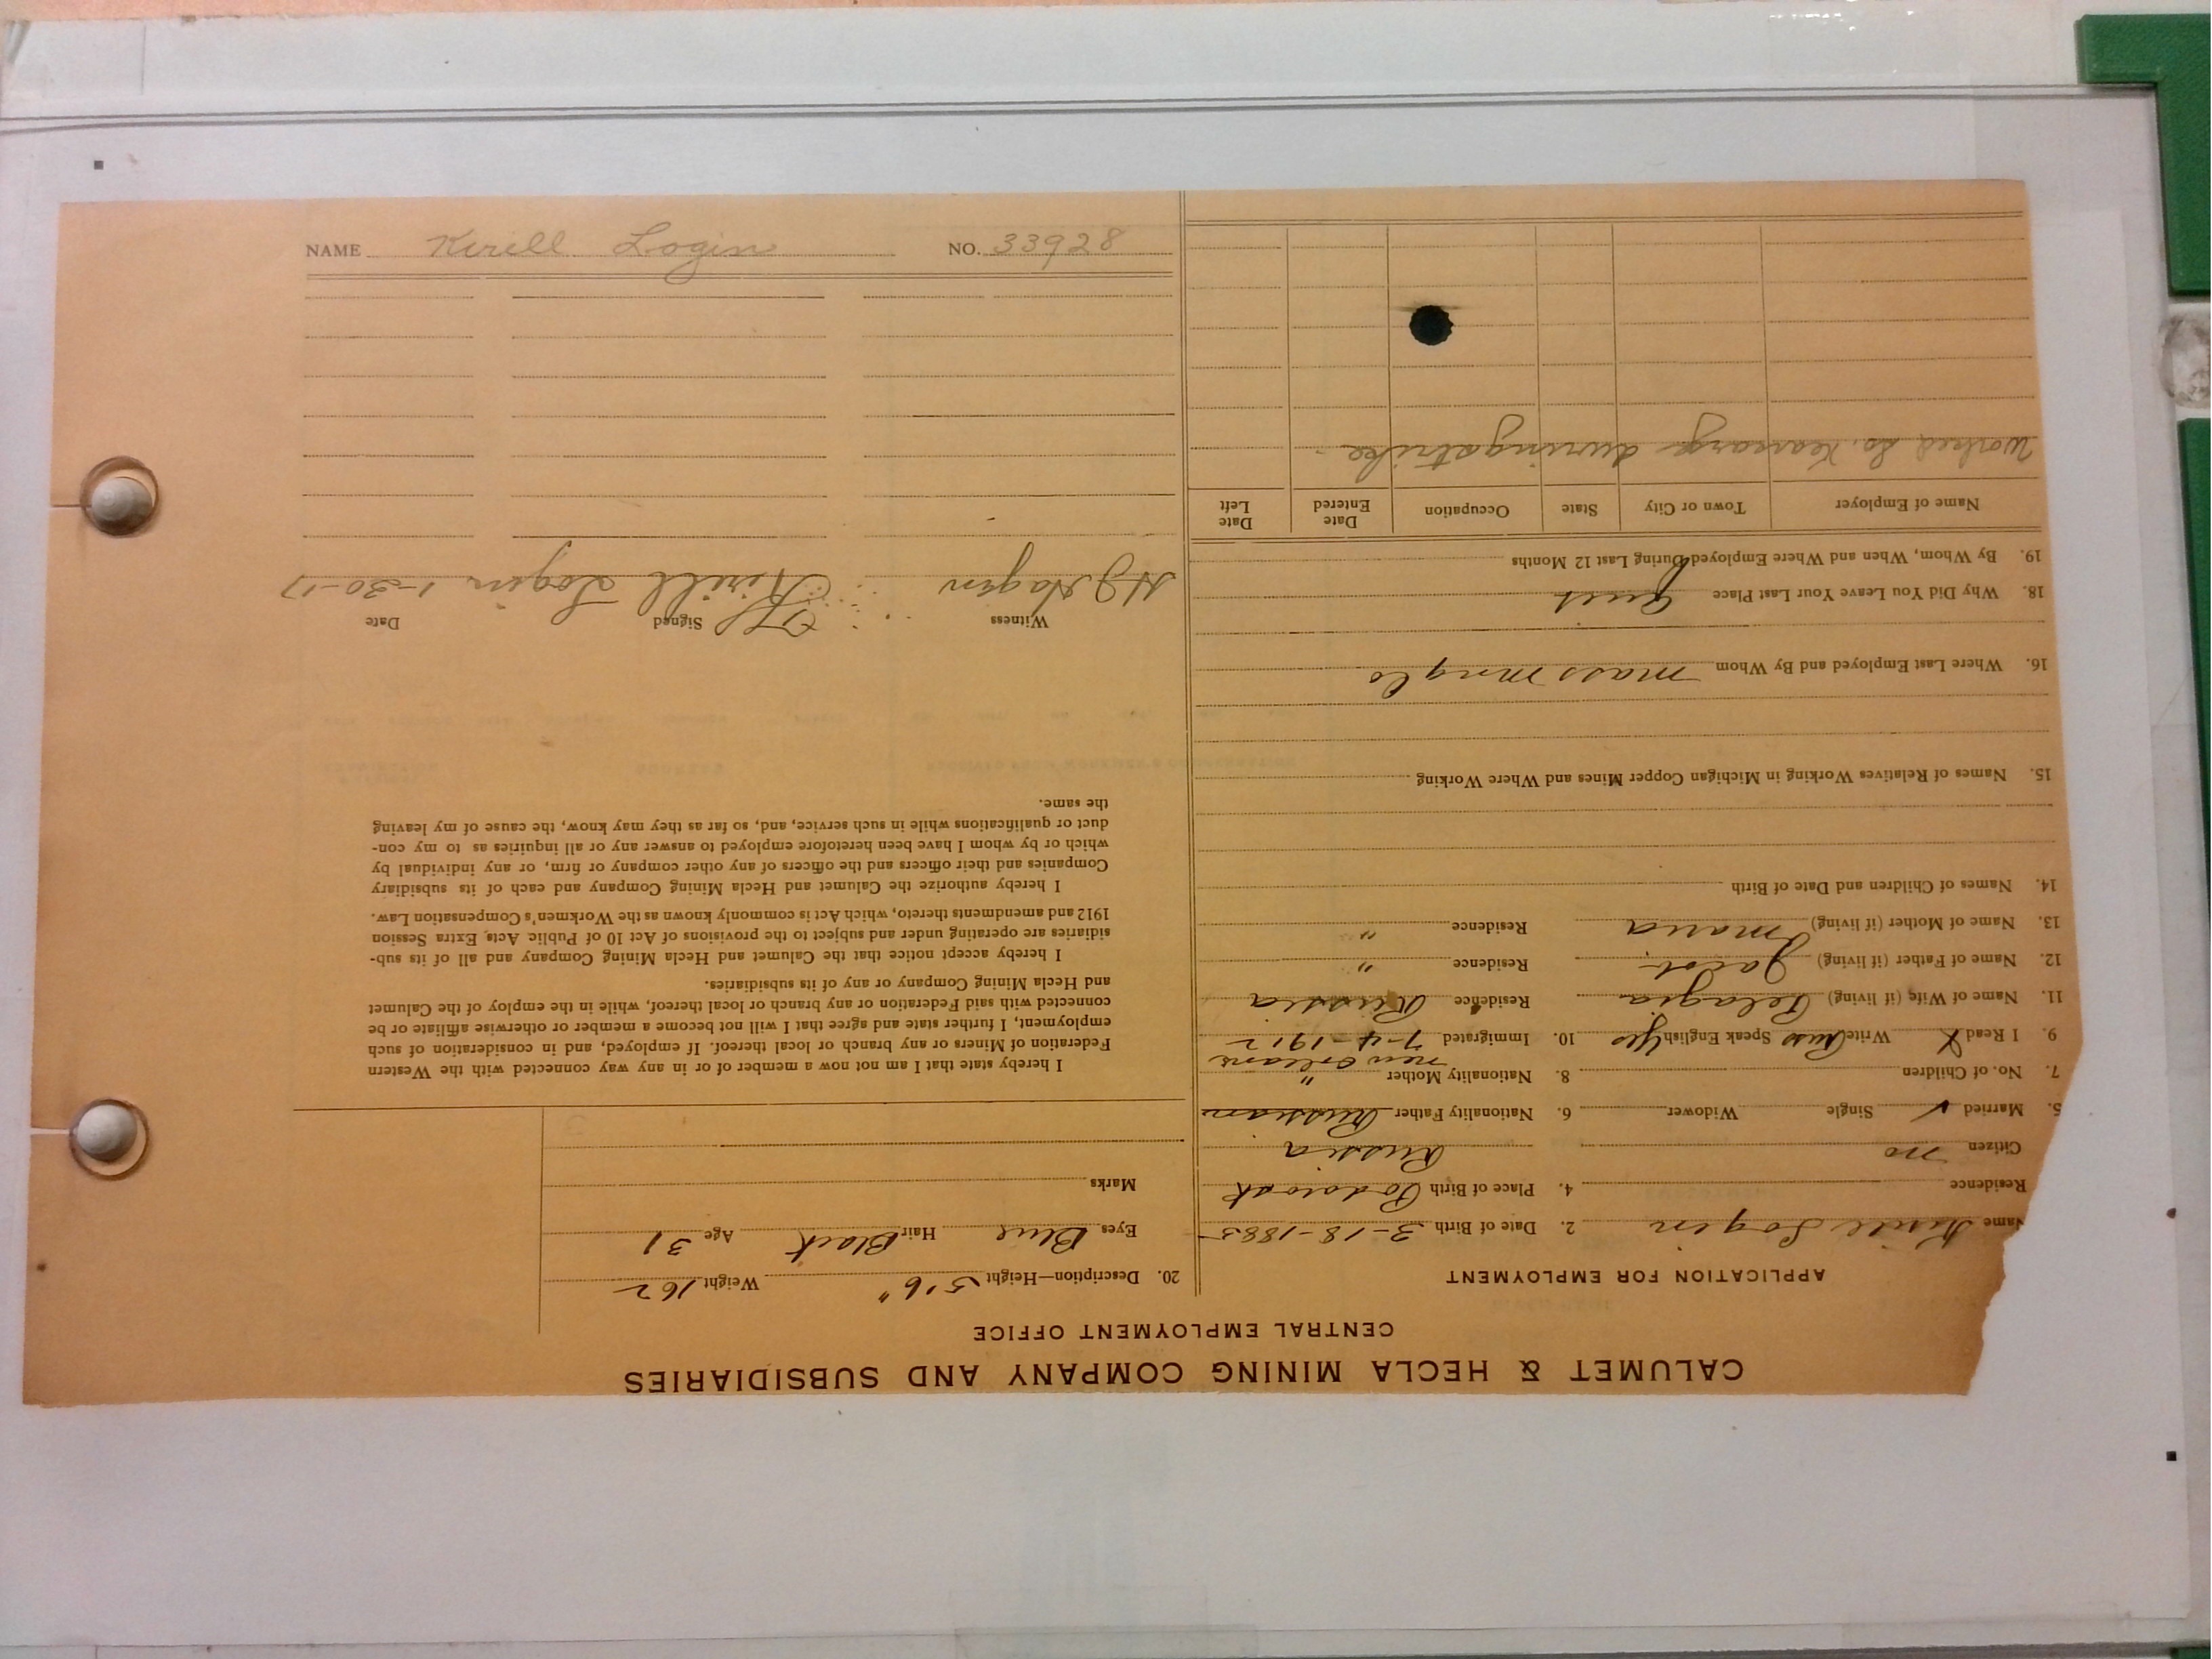 CALUMET & HECLA MINING COMPANY AND SUBSIDIARIES
CENTRAL EMPLOYMENT OFFICE
APPLICATION FOR EMPLOYMENT
Name Kirill Login 2. Date of Birth 3-18-1885
Residence 4. Place of Birth
Citizen no Russia
5. Married ✓ Single Widower 6. Nationality Father Russian
7. No. of Children 8. Nationality Mother "
New Orleans
9. I Read X Write Russ Speak English Yes 10. Immigrated 7-4-1912
11. Name of Wife (if living) Pelagia Residence Russia
12. Name of Father (if living) Jacob Residence "
13. Name of Mother (if living) Maria Residence "
14. Names of Children and Date of Birth
15. Names of Relatives Working in Michigan Copper Mines and Where Working
16. Where Last Employed and By Whom Mass Mng Co
18. Why Did You Leave Your Last Place Quit
19. By Whom, When and Where Employed During Last 12 Months
Name of Employer Town or City State Occupation Date Entered Date Left
Worked So. Kearsarge during strike
20. Description—Height 5'6" Weight 162
Eyes Blue Hair Black Age 31
Marks
I hereby state that I am not now a member of or in any way connected with the Western
Federation of Miners or any branch or local thereof. If employed, and in consideration of such
employment, I further state and agree that I will not become a member or otherwise affiliate or be
connected with said Federation or any branch or local thereof, while in the employ of the Calumet
and Hecla Mining Company or any of its subsidiaries.
I hereby accept notice that the Calumet and Hecla Mining Company and all of its sub-
sidiaries are operating under and subject to the provisions of Act 10 of Public Acts, Extra Session
1912 and amendments thereto, which Act is commonly known as the Workmen's Compensation Law.
I hereby authorize the Calumet and Hecla Mining Company and each of its subsidiary
Companies and their officers and the officers of any other company or firm, or any individual by
which or by whom I have been heretofore employed to answer any or all inquiries as to my con-
duct or qualifications while in such service, and, so far as they may know, the cause of my leaving
the same.
Witness Signed Date
H J Hagen Kirill Login 1-30-17
NAME Kirill Login NO. 33928